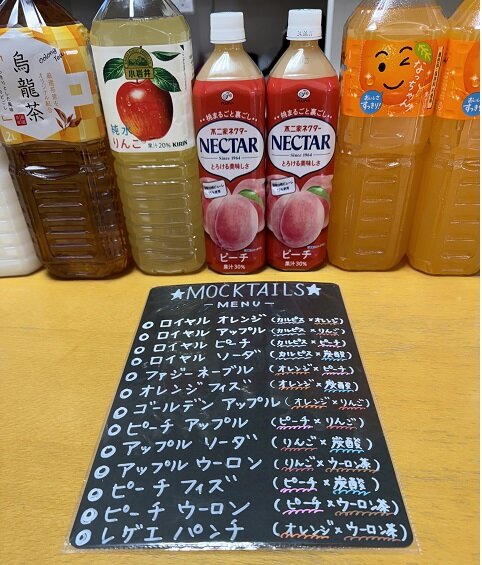 Oolong Tea
烏龍茶
小岩井
純水
りんご
果汁20% KIRIN
桃まるごと裏ごし
不二家ネクター
NECTAR
Since 1964
とろける美味しさ
ピーチ
果汁30%
桃まるごと裏ごし
不二家ネクター
NECTAR
Since 1964
とろける美味しさ
ピーチ
果汁30%
なっちゃん
おいしさすっきり!
★MOCKTAILS★
-MENU-
ロイヤル オレンジ (カルピス×オレンジ)
ロイヤル アップル (カルピス×りんご)
ロイヤル ピーチ (カルピス×ピーチ)
ロイヤル ソーダ (カルピス×炭酸)
ファジーネーブル (オレンジ×ピーチ)
オレンジ フィズ (オレンジ×炭酸)
ゴールデン アップル (オレンジ×りんご)
ピーチ アップル (ピーチ×りんご)
アップル ソーダ (りんご×炭酸)
アップル ウーロン (りんご×ウーロン茶)
ピーチ フィズ (ピーチ×炭酸)
ピーチ ウーロン (ピーチ×ウーロン茶)
レゲエ パンチ (オレンジ×ウーロン茶)